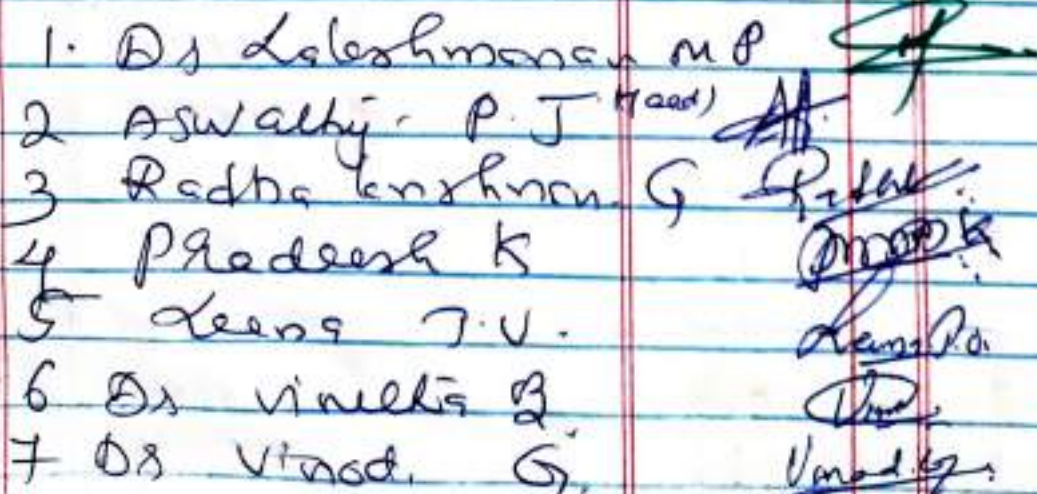 1. Dr Lakshmanan M P
2 Aswathy. P. J
3 Radha krishnan. G
4 Pradeesh K
5 Leena J.V.
6 Dr Vineetha B.
7 Dr Vinod. G. Vinod. G.